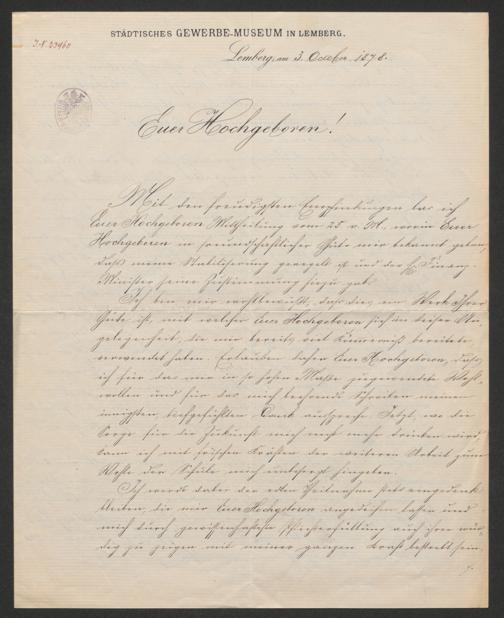 J.N. 23960
STÄDTISCHES GEWERBE-MUSEUM IN LEMBERG.
Lemberg, am 3. October 1878.
Euer Hochgeboren!
Mit den freudigsten Empfindungen las ich
Euer Hochgeboren Mittheilung vom 25 v. M., worin Euer
Hochgeboren in freundschaftlicher Güte mir bekannt geben,
daß meine Stabilisirung geregelt ist und der H. Finanz-
Minister seine Zustimmung hiezu gab.
Ich bin mir wohlbewußt, daß dies ein Werk Ihrer
Güte ist, mit welcher Euer Hochgeboren sich in dieser An-
gelegenheit, die mir bereits viel Kümmerniß bereitete,
verwendet haben. Erlauben daher Euer Hochgeboren, daß
ich für das mir in so hohem Maße zugewendete Wohl-
wollen und für das mich Schreiben meinen
innigsten, tiefgefühlten Dank ausspreche. Jetzt, wo die
Sorge für die Zukunft mich nicht mehr drücken wird,
kann ich mit frischen Kräften der weiteren Arbeit zum
Wohle der Schule mich hingeben.
Ich werde daher der edlen Theilnahme stets eingedenk
bleiben, die mir Euer Hochgeboren angedeihen ließen und
mich durch gewissenhafte Pflichterfüllung auch ihrer wür-
dig zu zeigen mit meiner ganzen Kraft bestrebt sein,